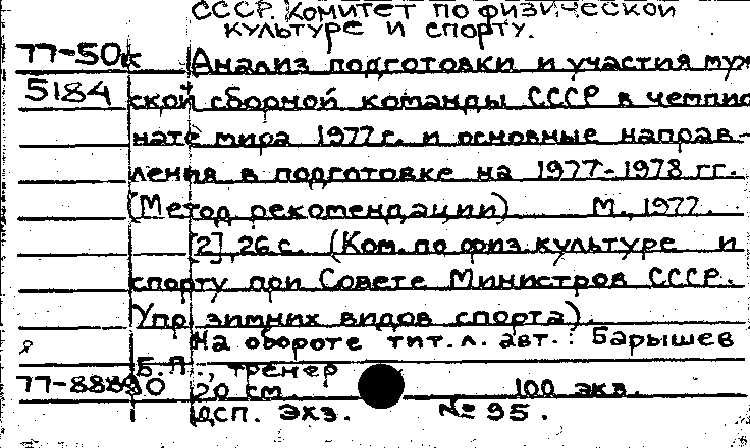 СССР. Комитет по физической
культуре и спорту.
77-50к Анализ подготовки и участия муж
5184 ской сборной команды СССР в чемпио
нате мира 1977г. и основные направ-
ления в подготовке на 1977-1978 гг.
(Метод рекомендации) М., 1977.
[2], 26 с. (Ком. по физ. культуре и
спорту при Совете Министров СССР.
Упр зимних видов спорта).
На обороте тит. л. авт.: Барышев
Б.П., тренер
77-88890 20 см. 100 экз.
ДСП. Экз. № 95.